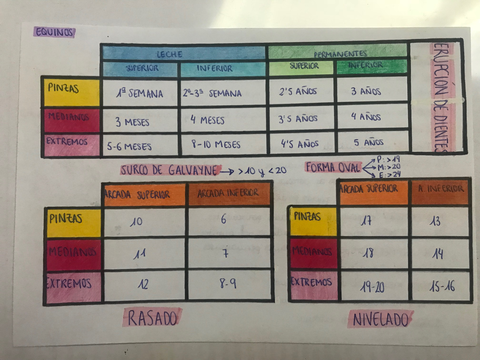 EQUINOS
LECHE PERMANENTES
SUPERIOR INFERIOR SUPERIOR INFERIOR
ERUPCIÓN DE DIENTES
PINZAS 1ª SEMANA 2ª-3ª SEMANA 2'5 AÑOS 3 AÑOS
MEDIANOS 3 MESES 4 MESES 3'5 AÑOS 4 AÑOS
EXTREMOS 5-6 MESES 8-10 MESES 4'5 AÑOS 5 AÑOS
SURCO DE GALVAYNE → >10 y <20
FORMA OVAL P: >19
M: >20
E: >24
ARCADA SUPERIOR ARCADA INFERIOR
PINZAS 10 6
MEDIANOS 11 7
EXTREMOS 12 8-9
RASADO
ARCADA SUPERIOR A. INFERIOR
PINZAS 17 13
MEDIANOS 18 14
EXTREMOS 19-20 15-16
NIVELADO